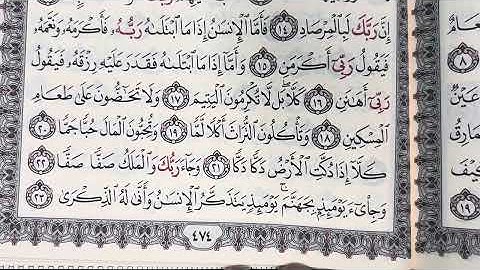 إِنَّ رَبَّكَ لَبِالْمِرْصَادِ ١٤ فَأَمَّا ٱلْإِنسَٰنُ إِذَا مَا ٱبْتَلَىٰهُ رَبُّهُۥ فَأَكْرَمَهُۥ وَنَعَّمَهُۥ
فَيَقُولُ رَبِّىٓ أَكْرَمَنِ ١٥ وَأَمَّآ إِذَا مَا ٱبْتَلَىٰهُ فَقَدَرَ عَلَيْهِ رِزْقَهُۥ فَيَقُولُ
رَبِّىٓ أَهَٰنَنِ ١٦ كَلَّا بَل لَّا تُكْرِمُونَ ٱلْيَتِيمَ ١٧ وَلَا تَحَٰٓضُّونَ عَلَىٰ طَعَامِ
ٱلْمِسْكِينِ ١٨ وَتَأْكُلُونَ ٱلتُّرَاثَ أَكْلًا لَّمًّا ١٩ وَتُحِبُّونَ ٱلْمَالَ حُبًّا جَمًّا ٢٠
كَلَّآ إِذَا دُكَّتِ ٱلْأَرْضُ دَكًّا دَكًّا ٢١ وَجَآءَ رَبُّكَ وَٱلْمَلَكُ صَفًّا صَفًّا ٢٢
وَجِا۟ىٓءَ يَوْمَئِذٍۭ بِجَهَنَّمَ يَوْمَئِذٍ يَتَذَكَّرُ ٱلْإِنسَٰنُ وَأَنَّىٰ لَهُ ٱلذِّكْرَىٰ ٢٣
٤٧٤
٨
١٩